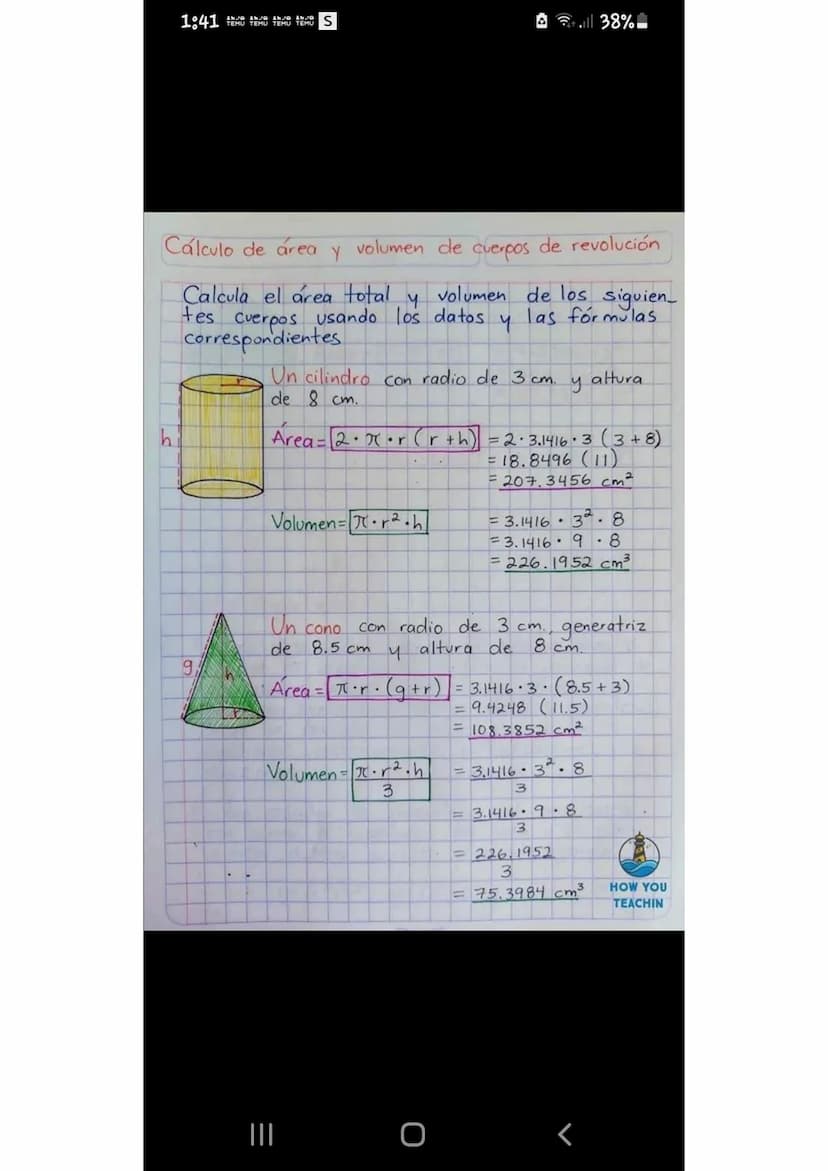 1:41 TEMU TEMU TEMU TEMU S 38%
Cálculo de área y volumen de cuerpos de revolución
Calcula el área total y volumen de los siguien_
tes cuerpos usando los datos y las fórmulas
correspondientes
r
h
Un cilindro con radio de 3 cm. y altura
de 8 cm.
Área = 2 · π · r ( r + h ) = 2 · 3.1416 · 3 ( 3 + 8 )
= 18.8496 ( 11 )
= 207.3456 cm²
Volumen = π · r² · h = 3.1416 · 3² · 8
= 3.1416 · 9 · 8
= 226.1952 cm³
g
h
r
Un cono con radio de 3 cm., generatriz
de 8.5 cm y altura de 8 cm.
Área = π · r · (g + r) = 3.1416 · 3 · (8.5 + 3)
= 9.4248 (11.5)
= 108.3852 cm²
Volumen = π · r² · h = 3.1416 · 3² · 8
3 3
= 3.1416 · 9 · 8
3
= 226.1952
3
= 75.3984 cm³
HOW YOU
TEACHIN